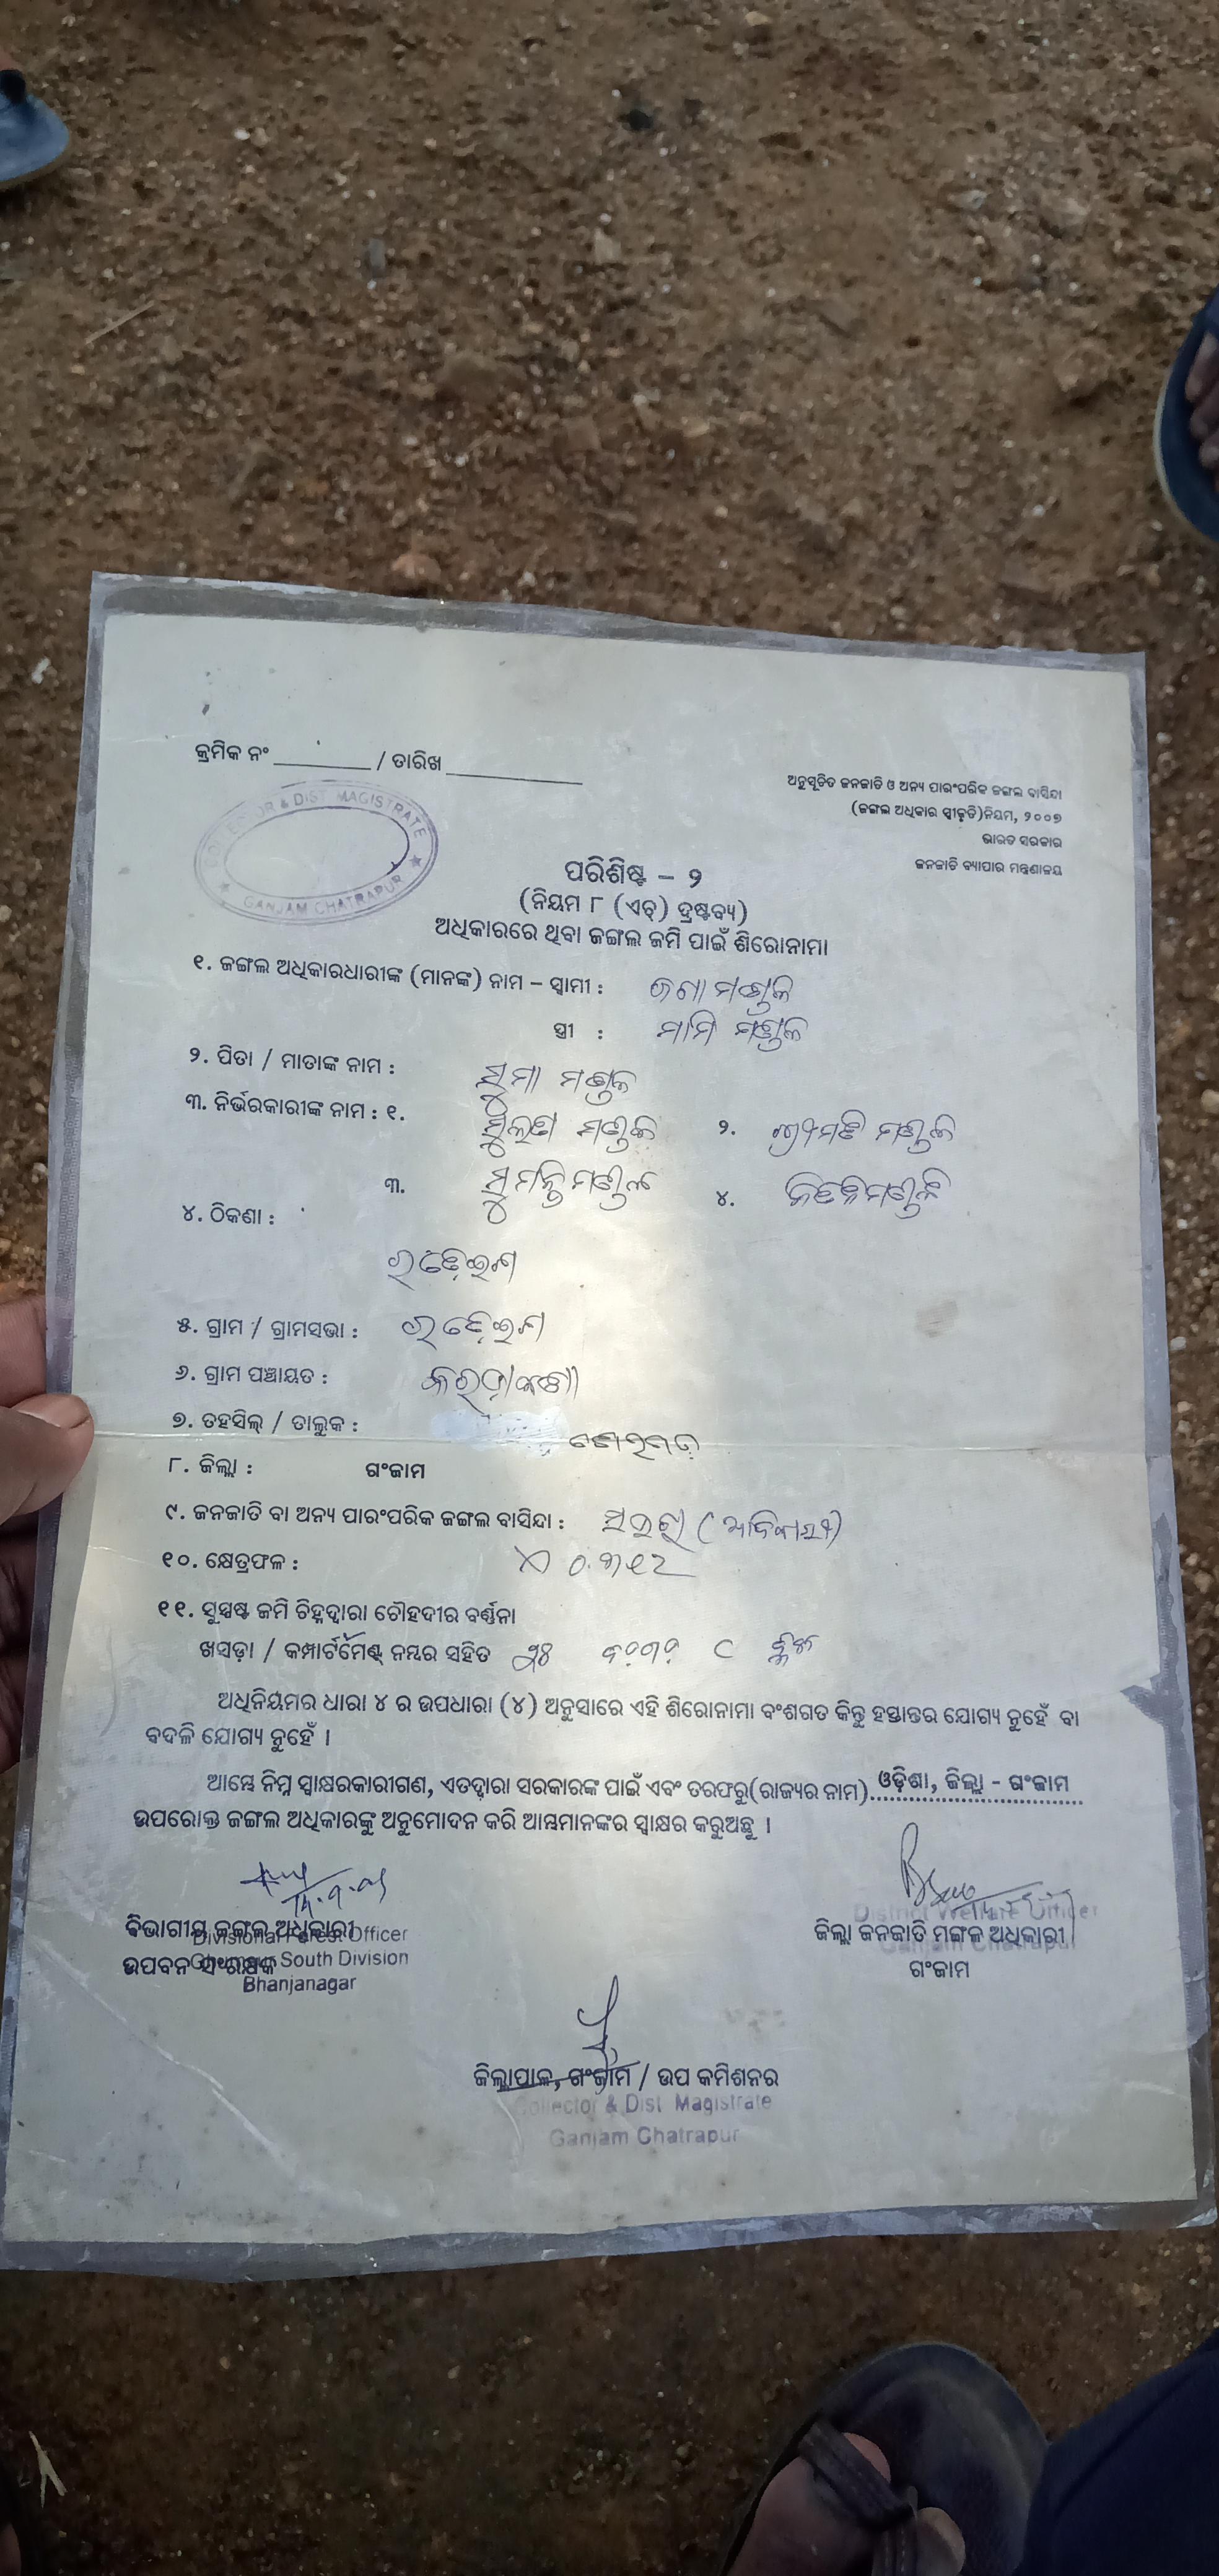 କ୍ରମିକ ନଂ ________ / ତାରିଖ ____________
ଅନୁସୂଚିତ ଜନଜାତି ଓ ଅନ୍ୟ ପାରଂପରିକ ଜଙ୍ଗଲ ବାସିନ୍ଦା
(ଜଙ୍ଗଲ ଅଧିକାର ସ୍ୱୀକୃତି)ନିୟମ, ୨୦୦୭
ଭାରତ ସରକାର
ଜନଜାତି ବ୍ୟାପାର ମନ୍ତ୍ରଣାଳୟ
COLLECTOR & DIST MAGISTRATE
GANJAM CHATRAPUR
ପରିଶିଷ୍ଟ – ୨
(ନିୟମ ୮ (ଏଚ୍) ଦ୍ରଷ୍ଟବ୍ୟ)
ଅଧିକାରରେ ଥିବା ଜଙ୍ଗଲ ଜମି ପାଇଁ ଶିରୋନାମା
୧. ଜଙ୍ଗଲ ଅଧିକାରଧାରୀଙ୍କ (ମାନଙ୍କ) ନାମ – ସ୍ୱାମୀ :
ସ୍ତ୍ରୀ : ମାମି ମଣ୍ଡଳ
୨. ପିତା / ମାତାଙ୍କ ନାମ : ସୁମା ମଣ୍ଡଳ
୩. ନିର୍ଭରକାରୀଙ୍କ ନାମ : ୧. ମଣ୍ଡଳ ୨. ମଣ୍ଡଳ
୩. ସୁମନ୍ତି ମଣ୍ଡଳ ୪.
୪. ଠିକଣା :
୫. ଗ୍ରାମ / ଗ୍ରାମସଭା :
୬. ଗ୍ରାମ ପଞ୍ଚାୟତ :
୭. ତହସିଲ୍ / ତାଲୁକ :
୮. ଜିଲ୍ଲା : ଗଂଜାମ
୯. ଜନଜାତି ବା ଅନ୍ୟ ପାରଂପରିକ ଜଙ୍ଗଲ ବାସିନ୍ଦା :
୧୦. କ୍ଷେତ୍ରଫଳ :
୧୧. ସୁସ୍ପଷ୍ଟ ଜମି ଚିହ୍ନଦ୍ୱାରା ଚୌହଦୀର ବର୍ଣ୍ଣନା
ଖସଡ଼ା / କମ୍ପାର୍ଟମେଣ୍ଟ୍ ନମ୍ବର ସହିତ
ଅଧିନିୟମର ଧାରା ୪ ର ଉପଧାରା (୪) ଅନୁସାରେ ଏହି ଶିରୋନାମା ବଂଶଗତ କିନ୍ତୁ ହସ୍ତାନ୍ତର ଯୋଗ୍ୟ ନୁହେଁ ବା
ବଦଳି ଯୋଗ୍ୟ ନୁହେଁ ।
ଆମ୍ଭେ ନିମ୍ନ ସ୍ୱାକ୍ଷରକାରୀଗଣ, ଏତଦ୍ୱାରା ସରକାରଙ୍କ ପାଇଁ ଏବଂ ତରଫରୁ(ରାଜ୍ୟର ନାମ) ଓଡ଼ିଶା, ଜିଲ୍ଲା - ଗଂଜାମ
ଉପରୋକ୍ତ ଜଙ୍ଗଲ ଅଧିକାରଙ୍କୁ ଅନୁମୋଦନ କରି ଆମ୍ଭମାନଙ୍କର ସ୍ୱାକ୍ଷର କରୁଅଛୁ ।
ବିଭାଗୀୟ ଜଙ୍ଗଲ ଅଧିକାରୀ
Divisional Forest Officer
ଉପବନ ସଂରକ୍ଷକ
Ghumsur South Division
Bhanjanagar
District Welfare Officer
ଜିଲ୍ଲା ଜନଜାତି ମଙ୍ଗଳ ଅଧିକାରୀ
Ganjam Chatrapur
ଗଂଜାମ
ଜିଲ୍ଲାପାଳ, ଗଂଜାମ / ଉପ କମିଶନର
Collector & Dist Magistrate
Ganjam Chatrapur